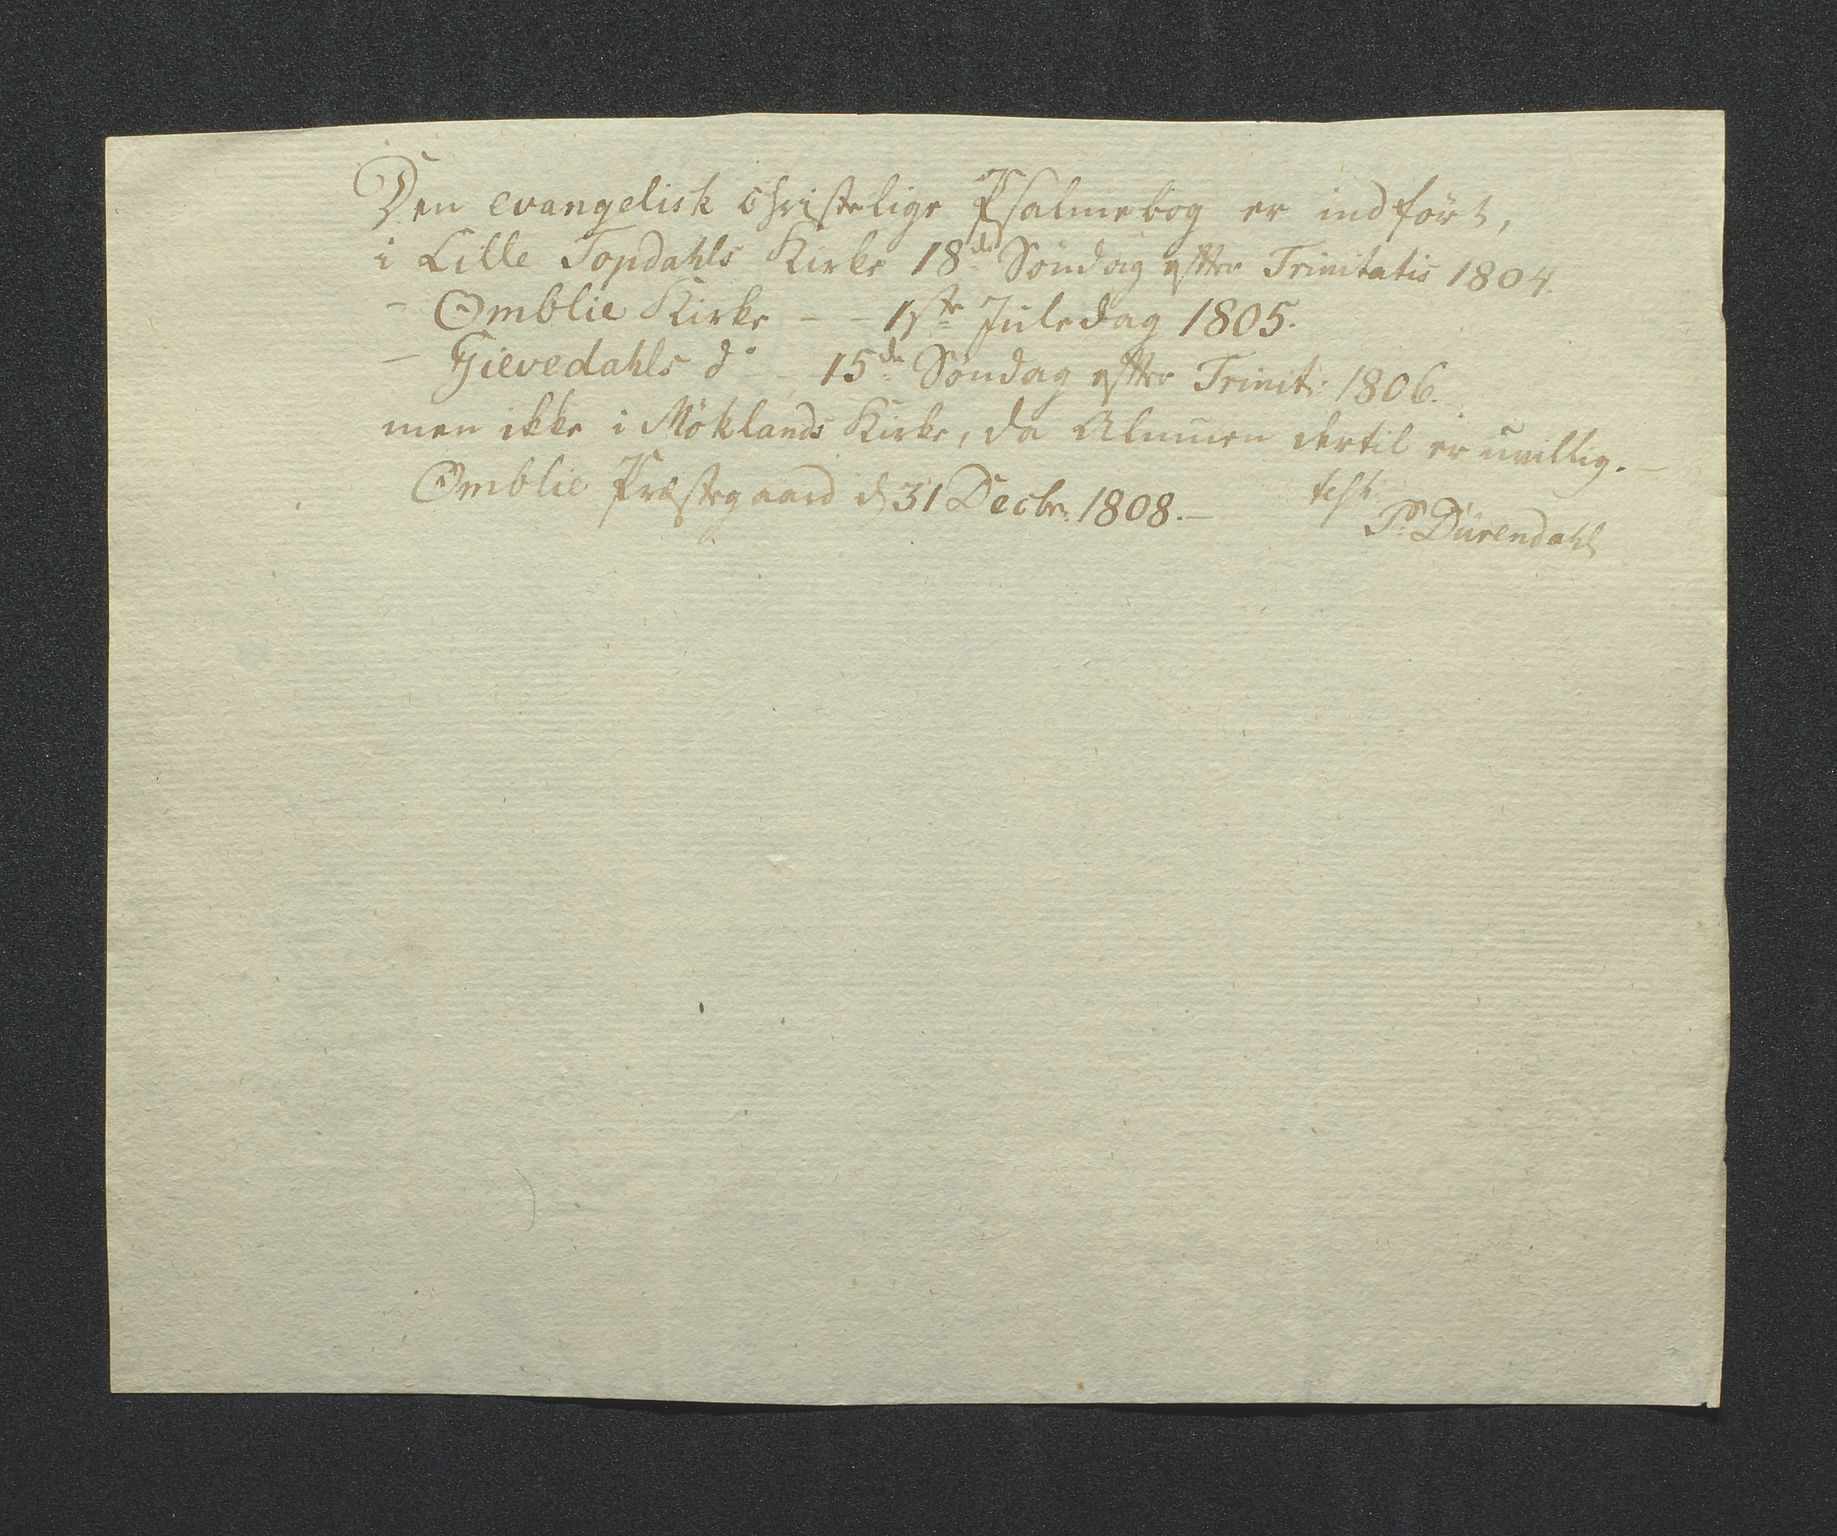 Den evangelisk christelige Psalmebog er indført,
i Lille Topdahls Kirke 18de Søndag efter Trinitatis 1804.
- Omblie Kirke - - 1ste Juledag 1805.
- Gievedahls do - 15de Søndag efter Trinit: 1806.
men ikke i Møklands Kirke, da Almuen dertil er uvillig. -
Omblie Præstegaard d 31 Decbr. 1808. - test
P. Dürendahl